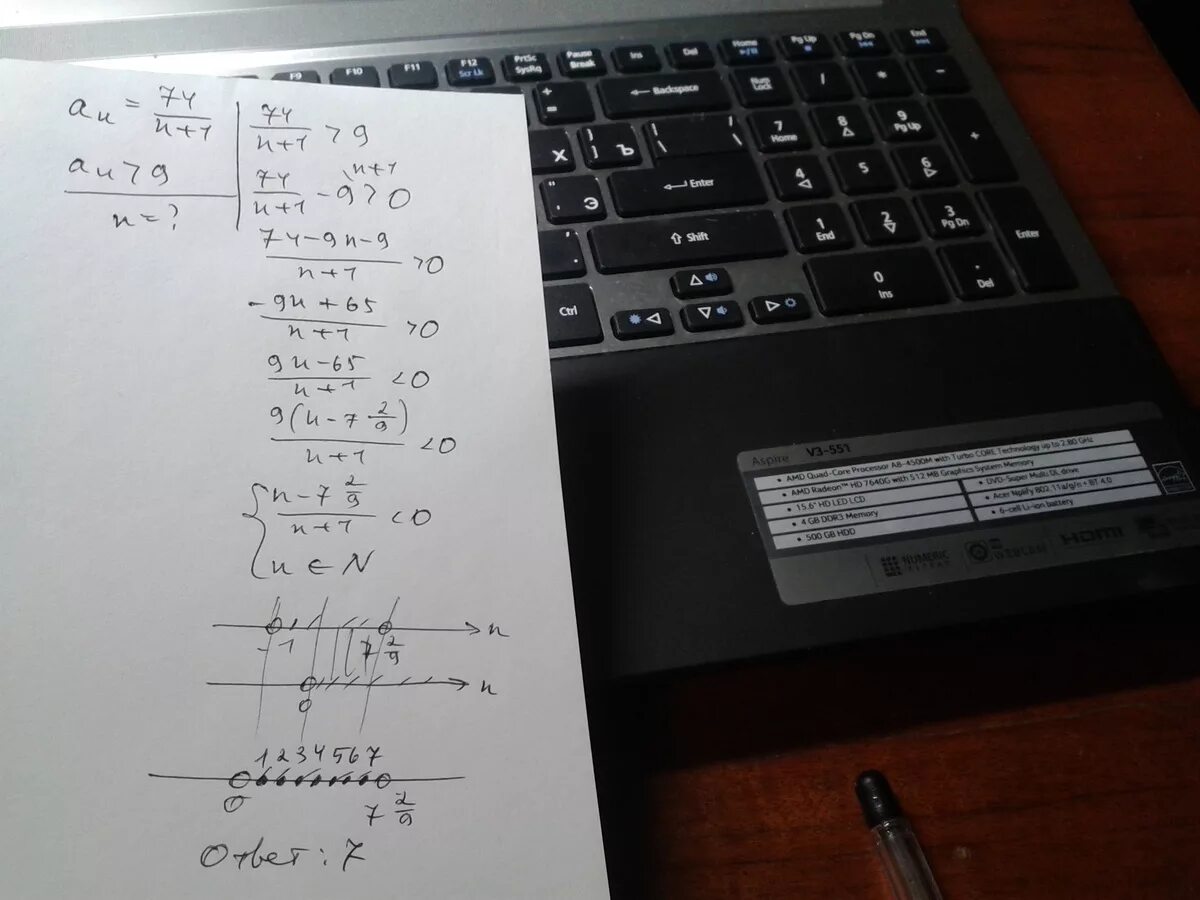 aₙ = 74/(n+1)
aₙ > 9
n = ?
74/(n+1) > 9
74/(n+1) - 9 \n+1 > 0
(74-9n-9)/(n+1) > 0
(-9n+65)/(n+1) > 0
(9n-65)/(n+1) < 0
9(n-7 2/9)/(n+1) < 0
{ (n-7 2/9)/(n+1) < 0
n ∈ N
-1 7 2/9 n
0 n
1 2 3 4 5 6 7
0 7 2/9
Ответ: 7
F9 F10 F11 F12 Scr Lk PrtSc SysRq Pause Break Ins Del Home Pg Up Pg Dn End
+ = ← Backspace Num Lock / * -
Х } ] Ъ | \ / \ 7 Home 8 9 Pg Up +
" ' Э Enter 4 5 6
⇧ Shift 1 End 2 3 Pg Dn Enter
Ctrl 0 Ins . Del
Aspire V3-551
• AMD Quad-Core Processor A8-4500M with Turbo CORE Technology up to 2.80 GHz
• AMD Radeon™ HD 7640G with 512 MB Graphics System Memory
• 15.6" HD LED LCD
• 4 GB DDR3 Memory
• 500 GB HDD
• DVD-Super Multi DL drive
• Acer Nplify 802.11a/g/n + BT 4.0
• 6-cell Li-ion battery
NUMERIC KEYPAD
WEBCAM
HDMI